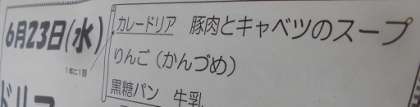 6月23日(水)
カレードリア 豚肉とキャベツのスープ
りんご(かんづめ)
黒糖パン 牛乳